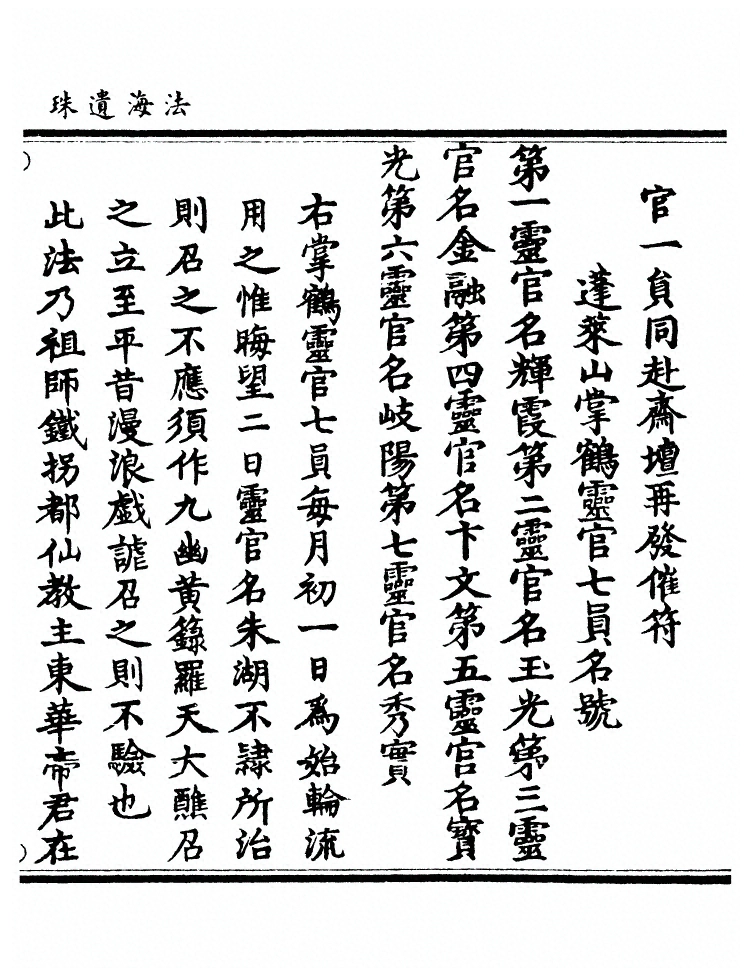 法海遺珠
官一員同赴齋壇再發催符
蓬萊山掌鶴靈官七員名號
第一靈官名輝霞第二靈官名玉光第三靈
官名金融第四靈官名卞文第五靈官名寶
光第六靈官名岐陽第七靈官名秀實
右掌鶴靈官七員每月初一日為始輪流
用之惟晦望二日靈官名朱湖不隸所治
則召之不應須作九幽黃籙羅天大醮召
之立至平昔漫浪戲謔召之則不驗也
此法乃祖師鐵拐都仙教主東華帝君在